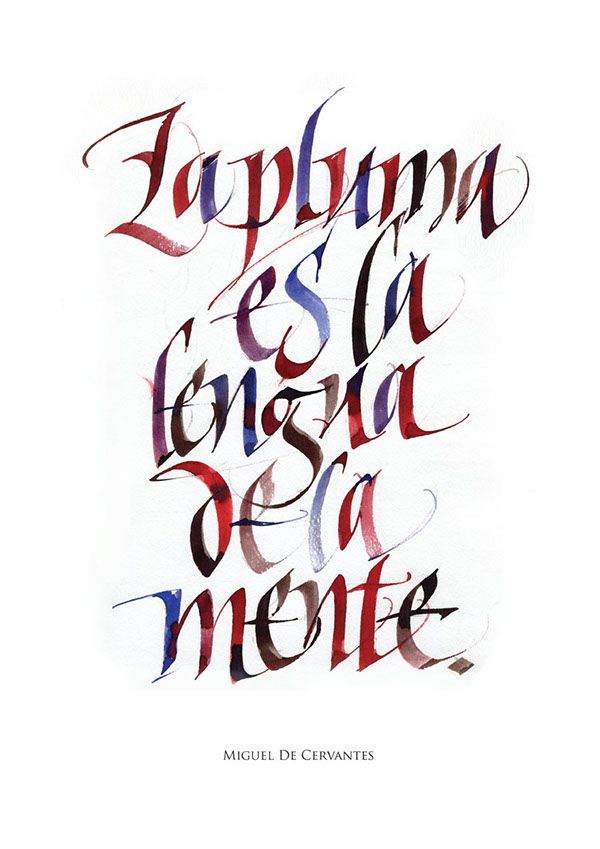 La pluma
es la
lengua
de la
mente.
Miguel De Cervantes